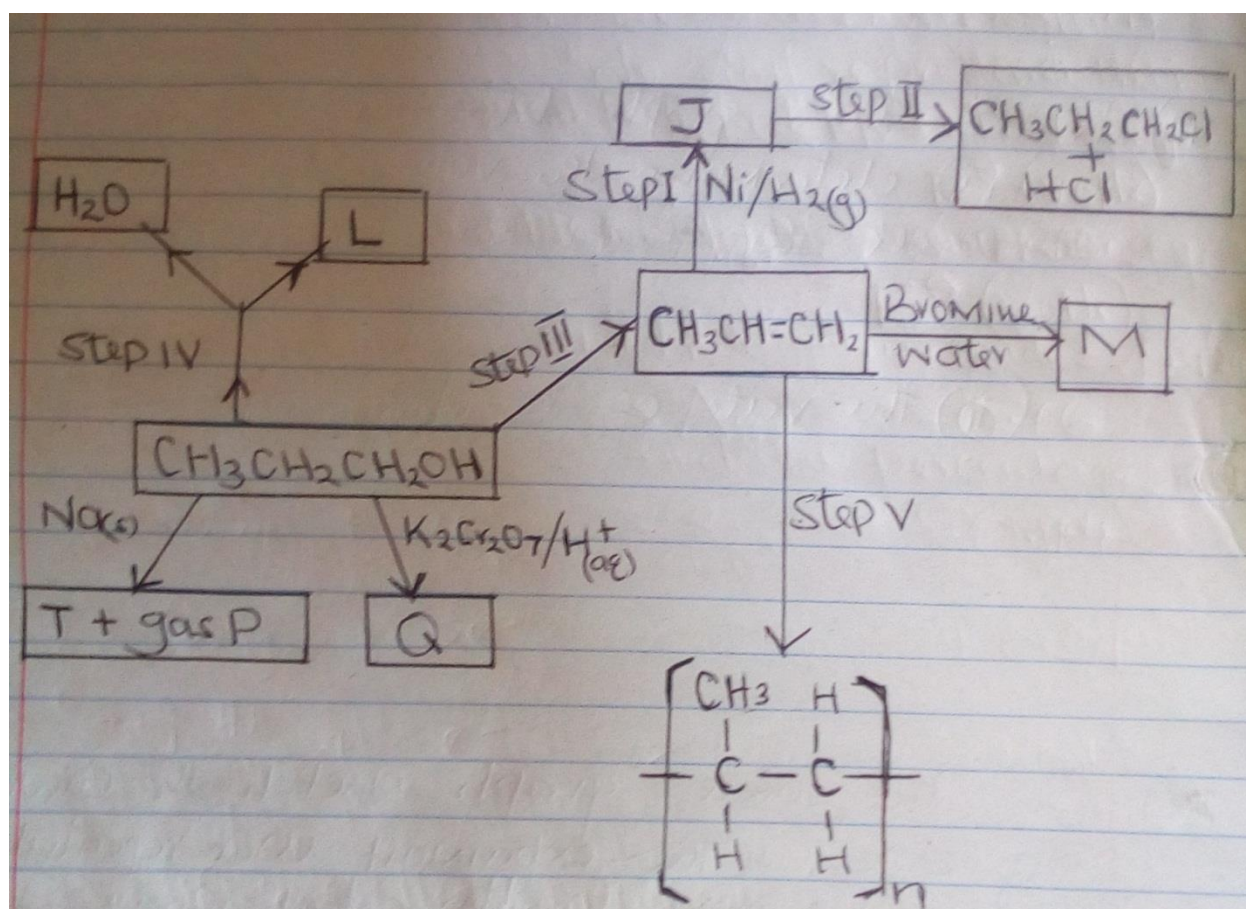 J
Step II
CH3CH2CH2Cl
+
HCl
Step I
Ni/H2(g)
H2O
L
Step IV
Step III
CH3CH=CH2
Bromine
Water
M
CH3CH2CH2OH
Na(s)
K2Cr2O7/H+(aq)
T + gas P
Q
Step V
CH3 H
C C
H H
n